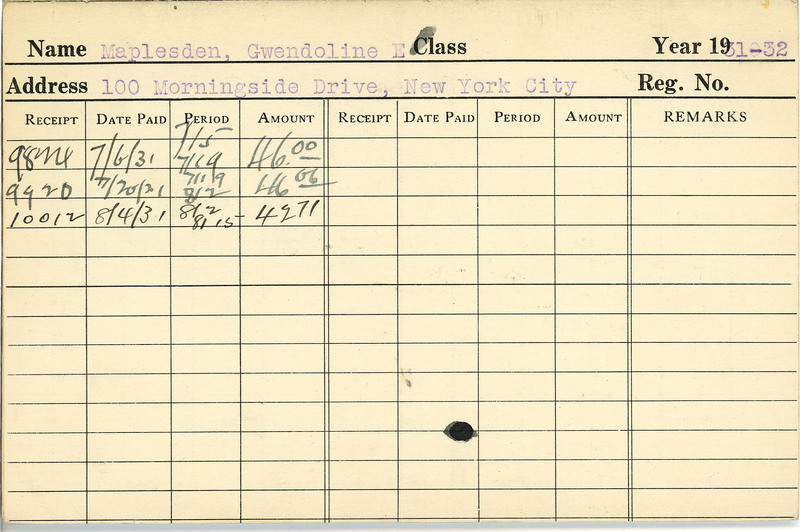 Name Maplesden, Gwendoline E Class Year 1931-32
Address 100 Morningside Drive, New York City Reg. No.
RECEIPT DATE PAID PERIOD AMOUNT RECEIPT DATE PAID PERIOD AMOUNT REMARKS
7/5
7/6/31 7/19 46.00
9920 7/19
7/20/31 8/2 46.00
10012 8/4/31 8/2 4271
8/15